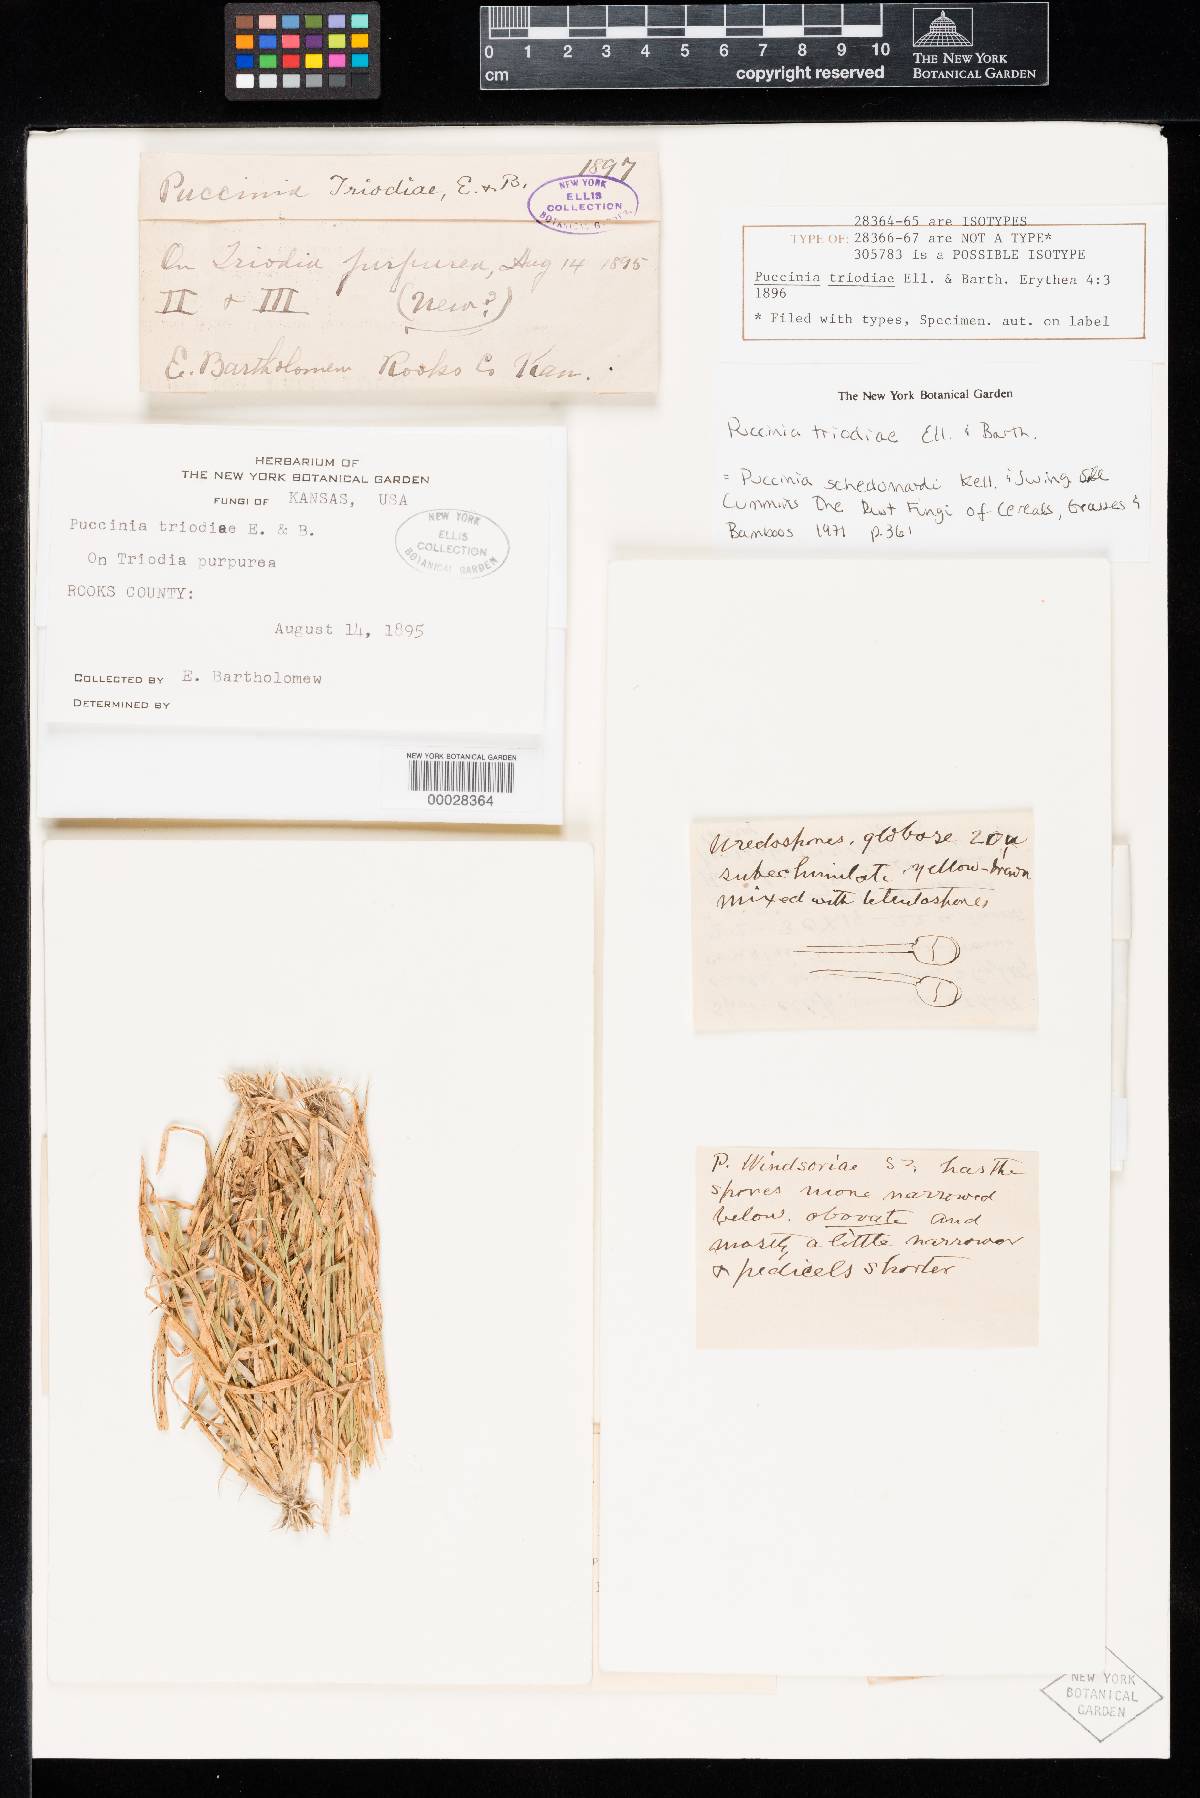 0 1 2 3 4 5 6 7 8 9 10
cm
copyright reserved
THE NEW YORK
BOTANICAL GARDEN
1897
Puccinia Triodiae, E. & B.
NEW YORK
ELLIS
COLLECTION
BOTANICAL GARDEN
On Triodia purpurea, Aug 14 1895
II & III (New?)
E. Bartholomew Rooks Co Kan.
28364-65 are ISOTYPES
TYPE OF: 28366-67 are NOT A TYPE*
305783 is a POSSIBLE ISOTYPE
Puccinia triodiae Ell. & Barth. Erythea 4:3
1896
* Filed with types, Specimen. aut. on label
The New York Botanical Garden
Puccinia triodiae Ell. & Barth.
= Puccinia schedonnardi Kell. & Swing See
Cummins The Rust Fungi of Cereals, Grasses &
Bamboos 1971 p.361
HERBARIUM OF
THE NEW YORK BOTANICAL GARDEN
FUNGI OF KANSAS, USA
Puccinia triodiae E. & B.
NEW YORK
ELLIS
COLLECTION
BOTANICAL GARDEN
On Triodia purpurea
ROOKS COUNTY:
August 14, 1895
COLLECTED BY E. Bartholomew
DETERMINED BY
NEW YORK BOTANICAL GARDEN
00028364
Uredospores. globose 20µ
subechinulate yellow-brown
mixed with teleutospores
P. Windsoriae S?, has the
spores more narrowed
below. obovate and
mostly a little narrower
& pedicels shorter
NEW YORK
BOTANICAL
GARDEN